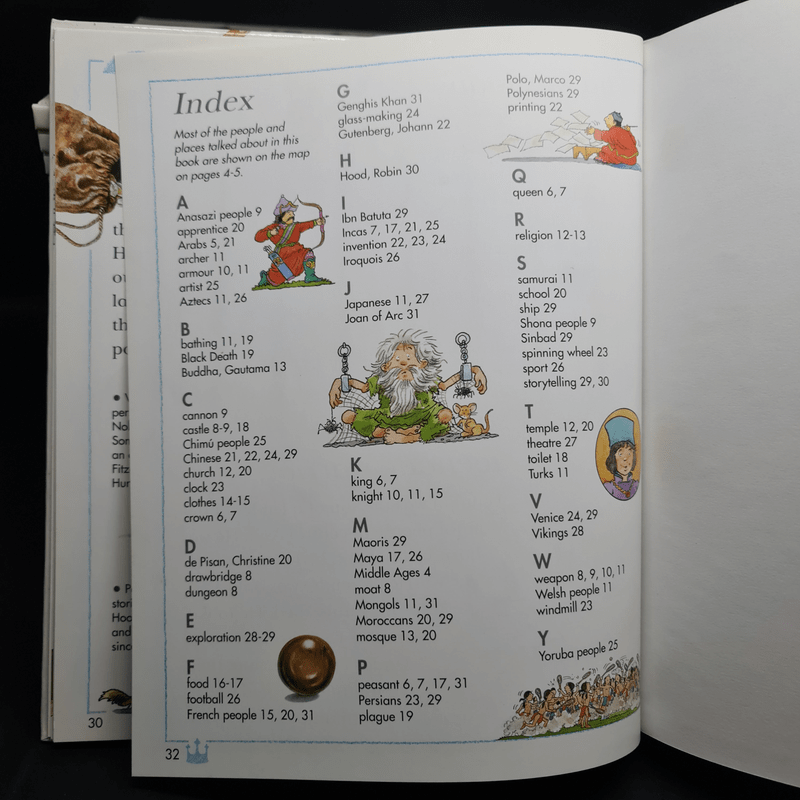 Index
Most of the people and
places talked about in this
book are shown on the map
on pages 4-5.
A
Anasazi people 9
apprentice 20
Arabs 5, 21
archer 11
armour 10, 11
artist 25
Aztecs 11, 26
B
bathing 11, 19
Black Death 19
Buddha, Gautama 13
C
cannon 9
castle 8-9, 18
Chimú people 25
Chinese 21, 22, 24, 29
church 12, 20
clock 23
clothes 14-15
crown 6, 7
D
de Pisan, Christine 20
drawbridge 8
dungeon 8
E
exploration 28-29
F
food 16-17
football 26
French people 15, 20, 31
G
Genghis Khan 31
glass-making 24
Gutenberg, Johann 22
H
Hood, Robin 30
I
Ibn Batuta 29
Incas 7, 17, 21, 25
invention 22, 23, 24
Iroquois 26
J
Japanese 11, 27
Joan of Arc 31
K
king 6, 7
knight 10, 11, 15
M
Maoris 29
Maya 17, 26
Middle Ages 4
moat 8
Mongols 11, 31
Moroccans 20, 29
mosque 13, 20
P
peasant 6, 7, 17, 31
Persians 23, 29
plague 19
Polo, Marco 29
Polynesians 29
printing 22
Q
queen 6, 7
R
religion 12-13
S
samurai 11
school 20
ship 29
Shona people 9
Sinbad 29
spinning wheel 23
sport 26
storytelling 29, 30
T
temple 12, 20
theatre 27
toilet 18
Turks 11
V
Venice 24, 29
Vikings 28
W
weapon 8, 9, 10, 11
Welsh people 11
windmill 23
Y
Yoruba people 25
32
30